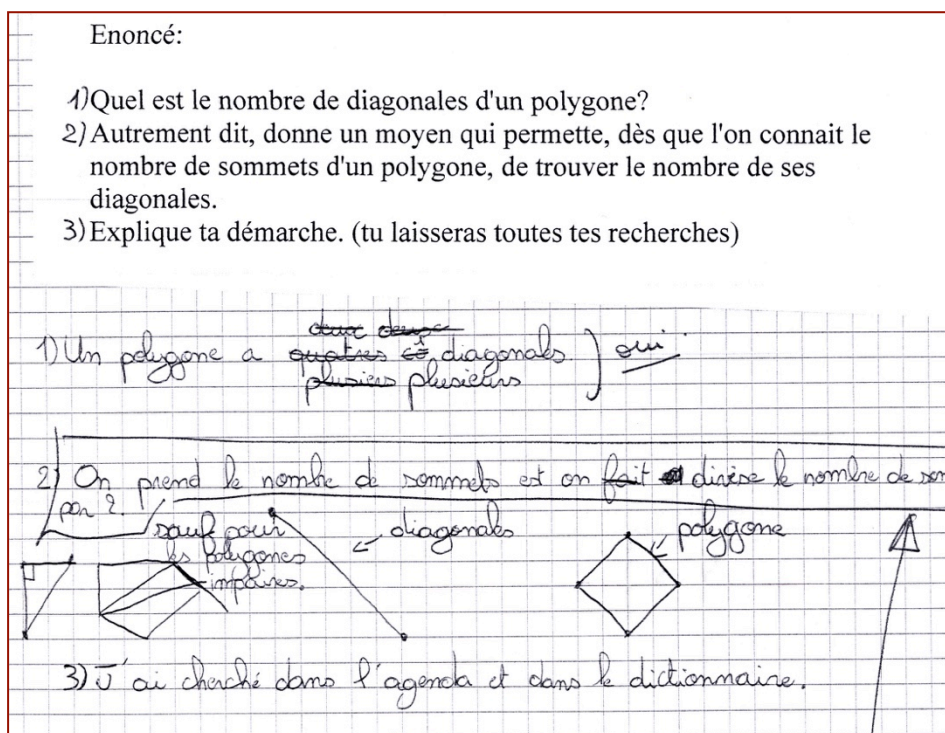 Enoncé:
1) Quel est le nombre de diagonales d'un polygone?
2) Autrement dit, donne un moyen qui permette, dès que l'on connait le
nombre de sommets d'un polygone, de trouver le nombre de ses
diagonales.
3) Explique ta démarche. (tu laisseras toutes tes recherches)
deux
1) Un polygone a quatres diagonals. } oui
plusiers plusieurs
2) On prend le nombre de sommets est on fait divise le nombre de som
par 2.
sauf pour
les polygones
impaires.
diagonales
polygone
3) J'ai cherché dans l'agenda et dans le dictionnaire.